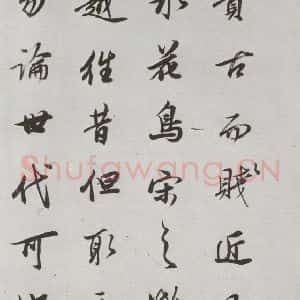 貴古而賤近
水花鳥宋之
越往昔但取
論世代可
Shufawang.CN